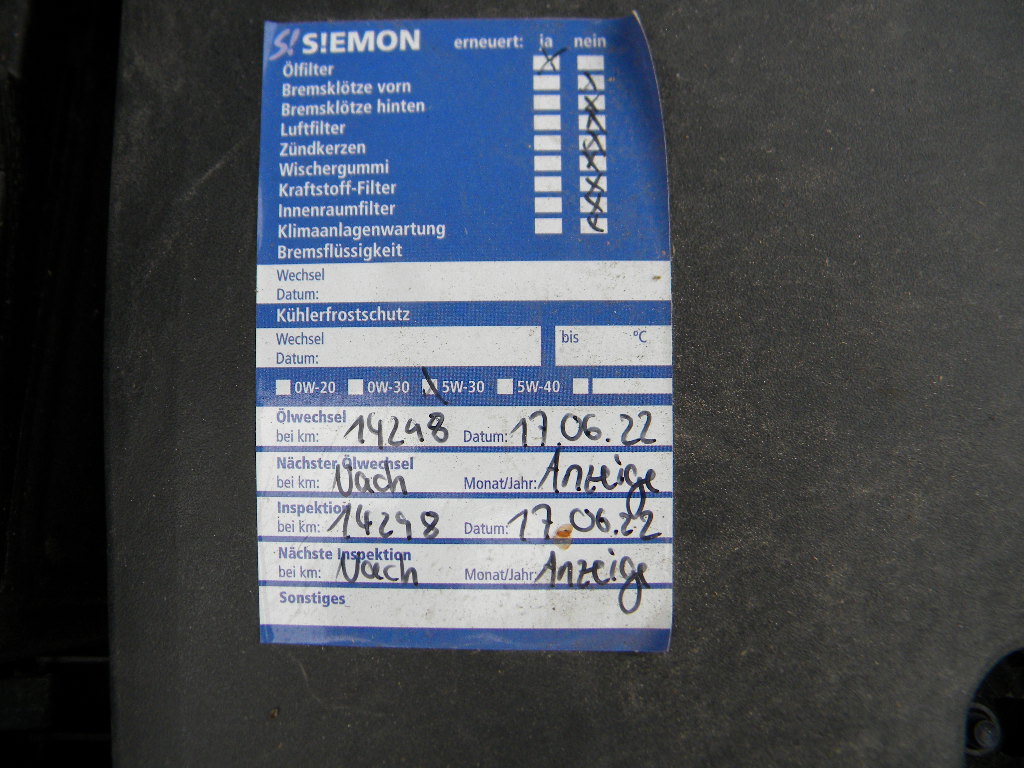 S! S!EMON erneuert: ja nein
Ölfilter
Bremsklötze vorn
Bremsklötze hinten
Luftfilter
Zündkerzen
Wischergummi
Kraftstoff-Filter
Innenraumfilter
Klimaanlagenwartung
Bremsflüssigkeit
Wechsel
Datum:
Kühlerfrostschutz
Wechsel bis °C
Datum:
0W-20 0W-30 5W-30 5W-40
Ölwechsel
bei km: 14298 Datum: 17.06.22
Nächster Ölwechsel
bei km: Nach Monat/Jahr: Anzeige
Inspektion
bei km: 14298 Datum: 17.06.22
Nächste Inspektion
bei km: Nach Monat/Jahr: Anzeige
Sonstiges